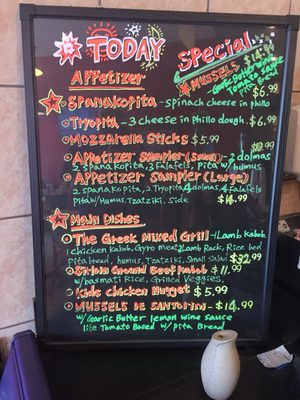 TODAY
Special...
Appetizer
MUSSELS $14.99
Tomato sauce
Pita Bread
Spanakopita - spinach cheese in phillo $6.99
Tryopita - 3 cheese in Phillo dough. $6.99
Mozzarella Sticks $5.99
Appetizer Sampler (small) - 2 dolmas
2 Spanakopita, 3 Falafels, Pita w/ Humus
Appetizer Sampler (Large)
2 Spanakopita, 2 Tryopita, 4 dolmas, 4 Falafels
Pita w/ Humus, Tzatziki, Side $14.99
Main Dishes
The Greek Mixed Grill - 1 Lamb Kabob,
1 chicken Kabob, Gyro meat, 2 Lamb Rack, Rice bed
Pita bread, humus, Tzatziki, Small Salad $32.99
Sirloin Ground Beef Kabob $11.99
w/ basmati Rice, Grilled Veggies,
Kids Chicken Nugget $5.99
MUSSELS DE SANTORINI - $14.99
w/ Garlic Butter lemon wine sauce
Tomato Based w/ Pita Bread